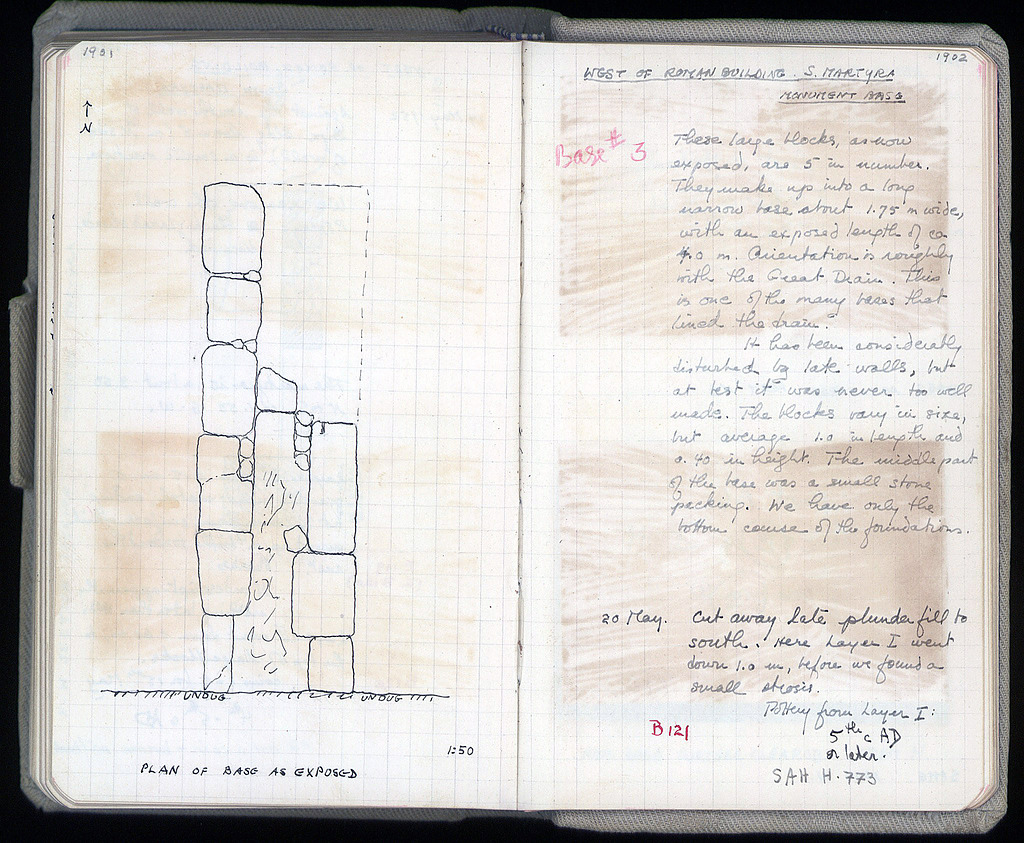 1901
↑
N
UNDUG
UNDUG
1:50
PLAN OF BASE AS EXPOSED
1902
WEST OF ROMAN BUILDING. S. MARTYRA
MONUMENT BASE
Base # 3
These large blocks, as now
exposed, are 5 in number.
They make up into a long
narrow base about 1.75 m wide,
with an exposed length of ca
4.0 m. Orientation is roughly
with the Great Drain. This
is one of the many bases that
lined the drain.
It has been considerably
disturbed by late walls, but
at best it was never too well
made. The blocks vary in size,
but average 1.0 in length and
0.40 in height. The middle part
of the base was a small stone
packing. We have only the
bottom course of the foundations.
20 May. Cut away late plunder fill to
south. Here Layer I went
down 1.0 m, before we found a
small strosis.
Pottery from Layer I:
B 121
5th c AD
or later.
SAH H. 773